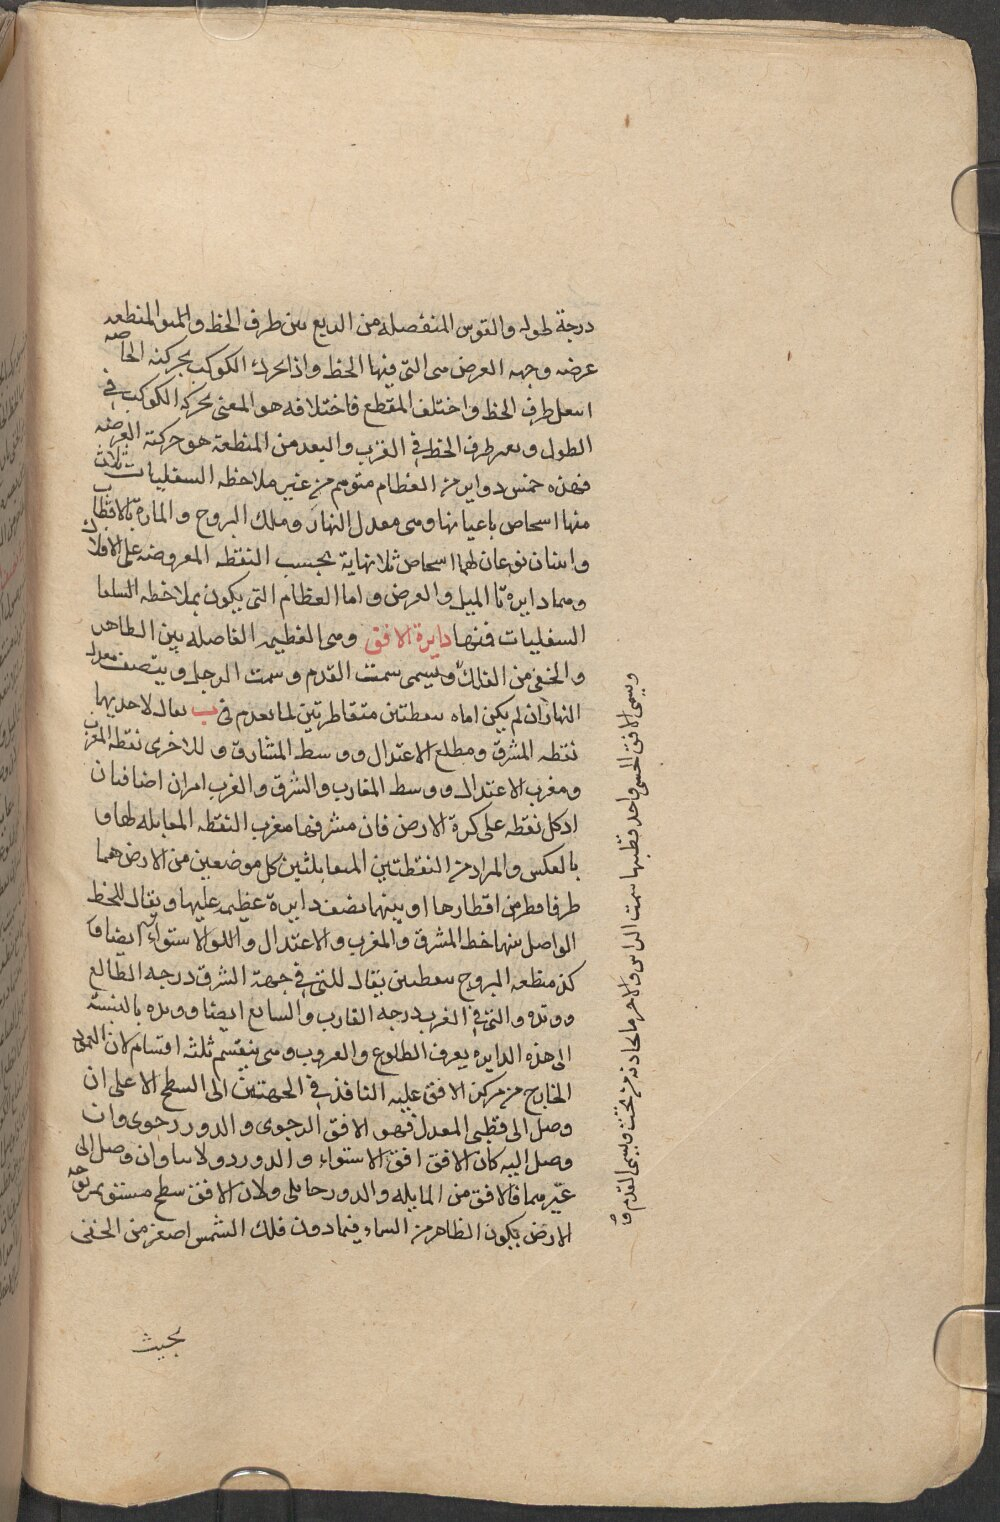 درجة طوله والقوس المنفصله من الربع بين طرف الخط والمنطقه
عرضه وجهه العرض هى التى فيها الخط واذا تحرك الكوكب بحركته الخاصه
انتقل طرف الخط واختلف المقطع فاختلافه هو المعنى بحركه الكوكب فى
الطول وتغير طرف الخط فى القرب والبعد من المنطقة هو حركته العرضيه
فهذه خمس دواير من العظام متوهم من غير ملاحظه السفليات ثلاث
منها اشخاص باعيانها وهى معدل النهار وفلك البروج والمارة بالاقطاب
واثنان نوعان لهما اشخاص بلا نهاية بحسب النقطه المفروضه على الافلاك
وهما دايرتا الميل والعرض واما العظام التى يكون بملاحظه
السفليات فمنها دايرة الافق وهى العظيمه الفاصله بين الظاهر
والخفى من الفلك ويسمى سمت القدم وسمت الرجل وينصف معدل
النهار ان لم يكن اياه بنقطتين متقاطرتين لما تقدم فى ب يقال لاحديهما
نقطه المشرق ومطلع الاعتدال ووسط المشارق وللاخرى نقطه المغرب
ومغرب الاعتدال ووسط المغارب والشرق والغرب امران اضافيان
اذ كل نقطه على كرة الارض فان مشرقها مغرب النقطه المقابله لها و
بالعكس والمراد من النقطتين المتقابلتين كل موضعين من الارض هما
طرفا قطر من اقطارها او بينهما نصف دايرة عظيمه عليها ويقال للخط
الواصل بينهما خط المشرق والمغرب والاعتدال والاستواء ايضا و
كذ منطقه البروج بنقطتين يقال للتى فى جهة الشرق درجه الطالع
ووتده والتى فى الغرب درجه الغارب والسابع ايضا ووتده بالنسبة
الى هذه الدايره يعرف الطلوع والغروب وهى ينقسم ثلثه اقسام لان العمود
الخارج من مركز الافق عليه النافذ فى الجهتين الى السطح الاعلى ان
وصل الى قطبى المعدل فهو الافق الرحوى والدور رحوى وان
وصل اليه كان الافق افق الاستواء والدور دولابيا وان وصل الى
غيرهما فالافق من المايله والدور حمايلى ولان الافق سطح مستو يمر بوجه
الارض يكون الظاهر من السماء فيما دون فلك الشمس اصغر من الخفى
بحيث
ويسمى الافق الحسى واحد قطبيها سمت الراس والاخر ما يحاذيه من تحت ويسمى القدم